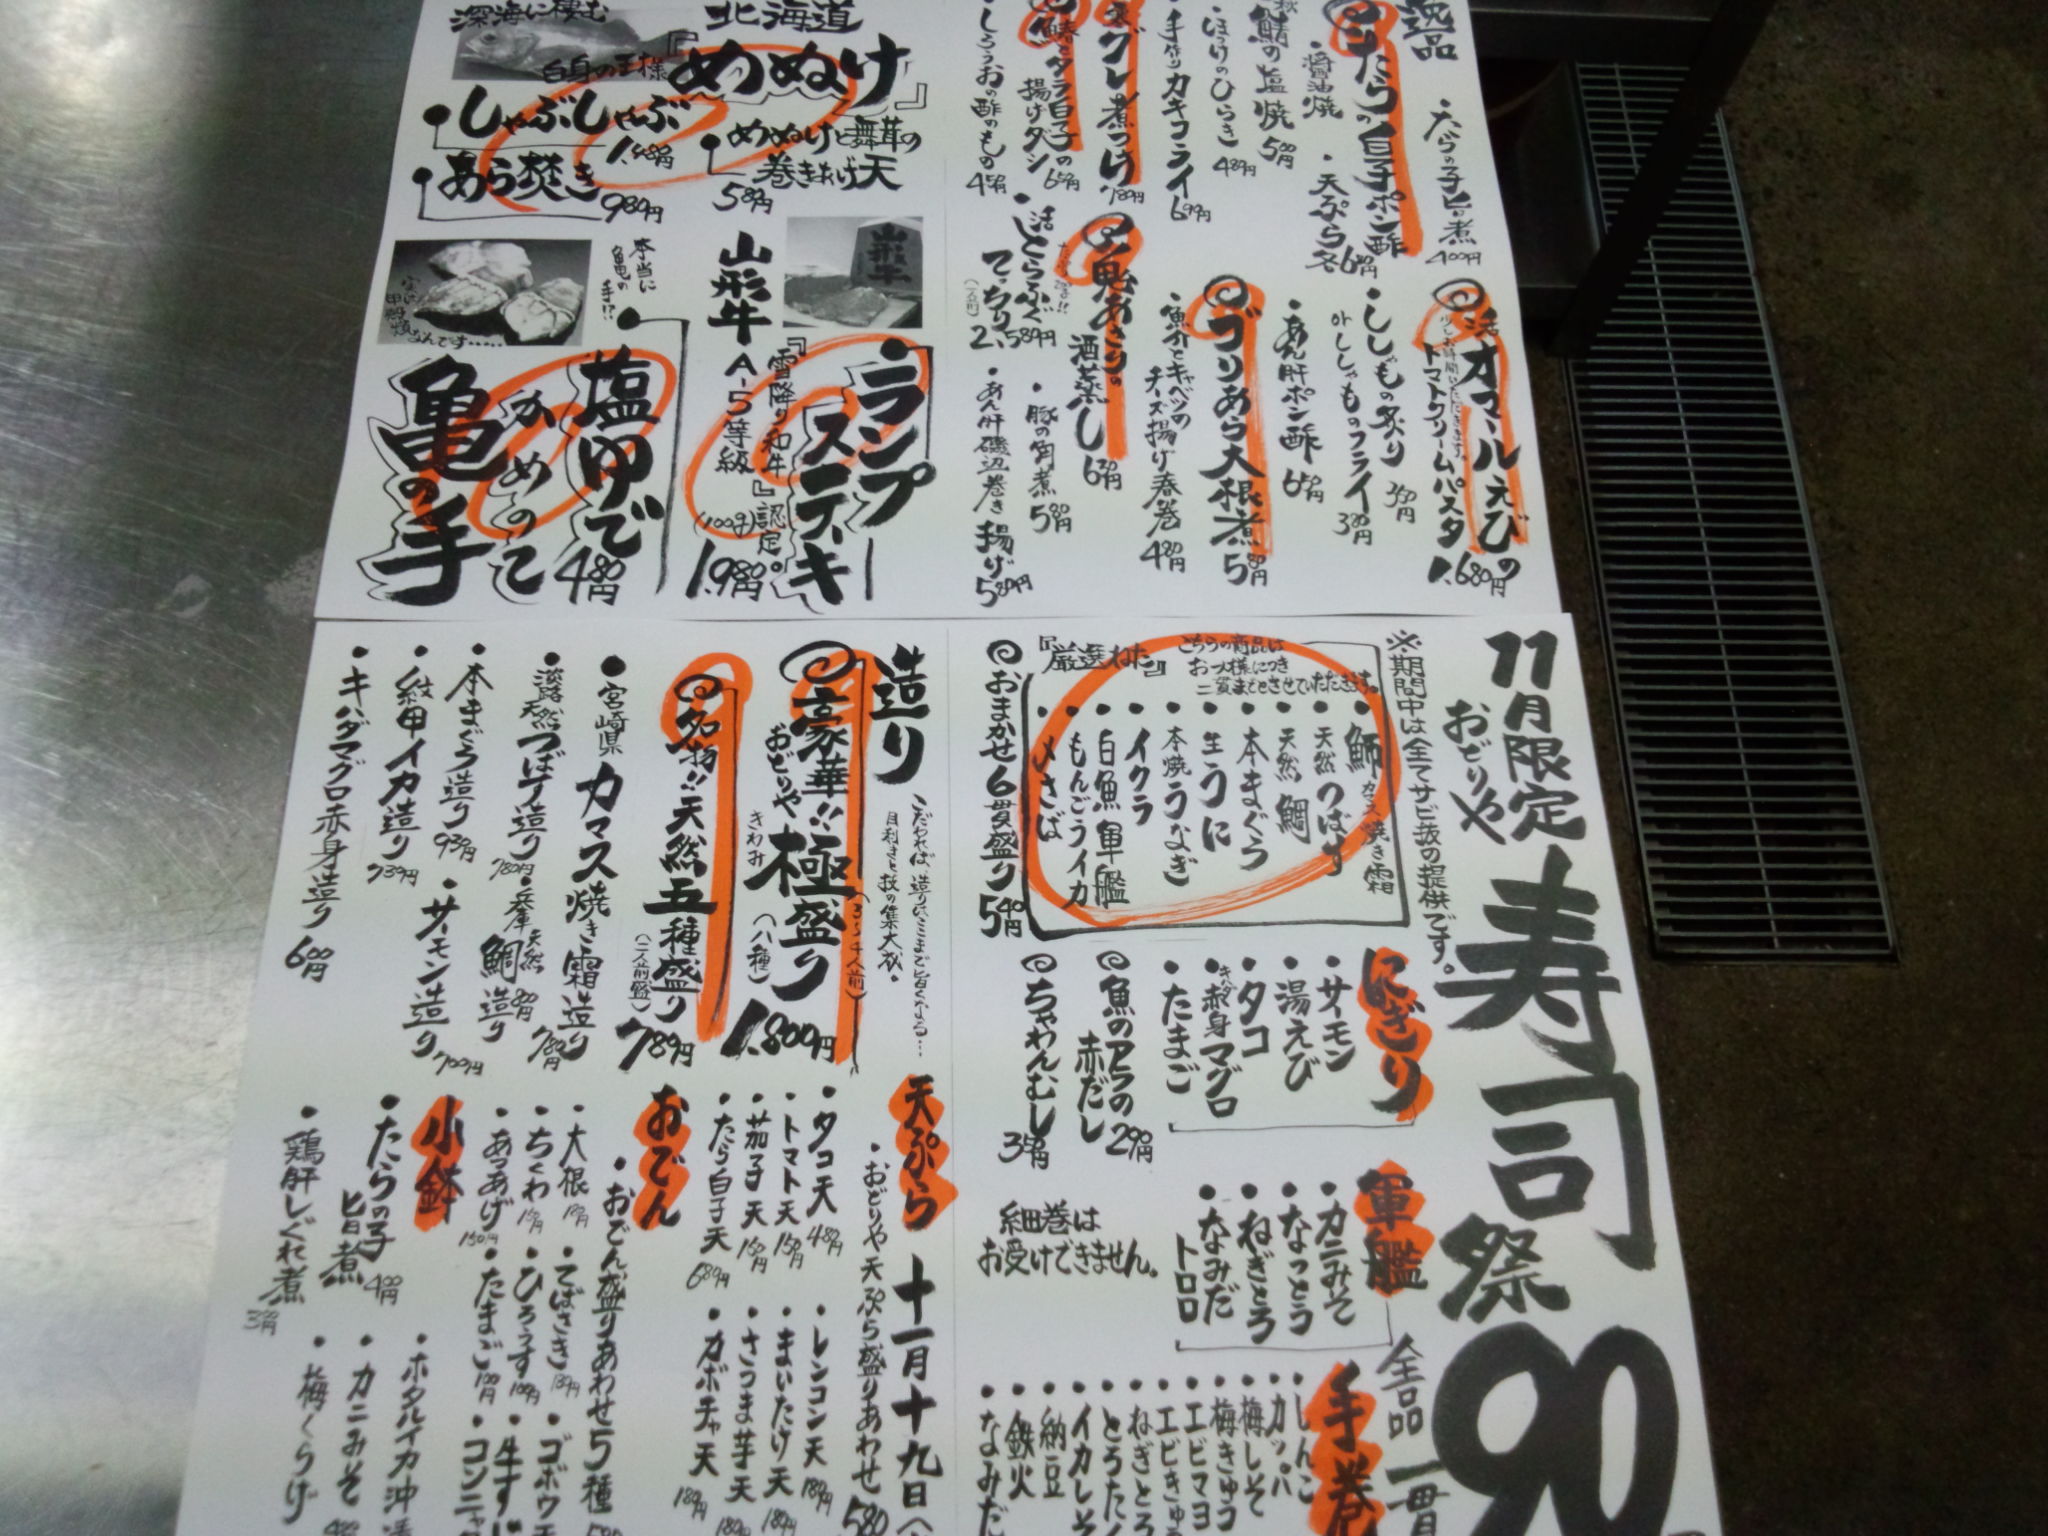 逸品
・たらの子旨煮 400円
たらの白子ポン酢
・天ぷら 各680円
醤油焼
鯖の塩焼 500円
ほっけのひらき 489円
手作りカキフライ 699円
グレ煮つけ 789円
タラ白子の揚げダシ 650円
しらうおの酢のもの 450円
活オマールえびの
トマトクリームパスタ 1,680円
・ししゃもの炙り 350円
ししゃものフライ 380円
・あん肝ポン酢 650円
ブリあら大根煮 580円
・魚介とキャベツの
チーズ揚げ春巻 480円
あさりの酒蒸し 680円
・豚の角煮 580円
・活とらふぐ
てっちり 2,589円
(一人前)
・あん肝磯辺巻き揚げ 580円
北海道
『めぬけ』
深海に棲む
白身の王様
・しゃぶしゃぶ 1,480円
・あら焚き 980円
・めぬけと舞茸の
巻きあげ天 580円
山形牛
山形牛 A-5等級
『雪降り和牛』認定。
・ランプ
ステーキ
(100g) 1,980円
本当に
亀の
手!?
亀の手
かめのて
・塩ゆで 480円
11月限定
おどりや
寿司祭
全品一貫
90
※期間中は全てサビ抜の提供です。
『厳選ねた』
こちらの商品は
お一人様につき
二貫までとさせていただきます。
・カマス焼き霜
・天然つばす
・天然鯛
・本まぐろ
・生うに
・本焼うなぎ
・イクラ
・白魚軍艦
・もんごうイカ
・〆さば
おまかせ6貫盛り 540円
にぎり
・サーモン
・湯えび
・タコ
・キハダ赤身マグロ
・たまご
魚のアラの
赤だし 290円
ちゃわんむし 350円
軍艦
・カニみそ
・なっとう
・ねぎとろ
・なみだ
トロロ
細巻は
お受けできません。
手巻
・しんこ
・カッパ
・梅しそ
・梅きゅう
・エビマヨ
・エビきゅう
・ねぎとろ
・とろたく
・イカしそ
・納豆
・鉄火
・なみだ
造り
こだわれば、造りはここまで旨くなる…
目利きと技の集大成。
豪華!!
おどりや極盛り
きわみ
(八種)
(3〜4人前)
1,800円
名物!!天然五種盛り
(一人前盛)
789円
・宮崎県 カマス焼き霜造り 780円
・淡路天然つばす造り 780円
・兵庫天然鯛造り 800円
・本まぐろ造り 939円
・サーモン造り 700円
・紋甲イカ造り 739円
・キハダマグロ赤身造り 600円
天ぷら
・おどりや天ぷら盛りあわせ 580
・タコ天 480円
・トマト天 150円
・茄子天 150円
・たら白子天 689円
・レンコン天 189円
・まいたけ天 189円
・さつま芋天 189円
・カボチャ天 189円
十一月十九日
おでん
・おでん盛りあわせ5種
・大根
・ちくわ
・あつあげ 150円
・てばさき 189円
・ひろうす
・たまご 100円
・ゴボウ天
・牛すじ
・コンニャ
小鉢
・たらの子
旨煮 400円
・鶏肝しぐれ煮
・ホタルイカ沖
・カニみそ
・梅くらげ